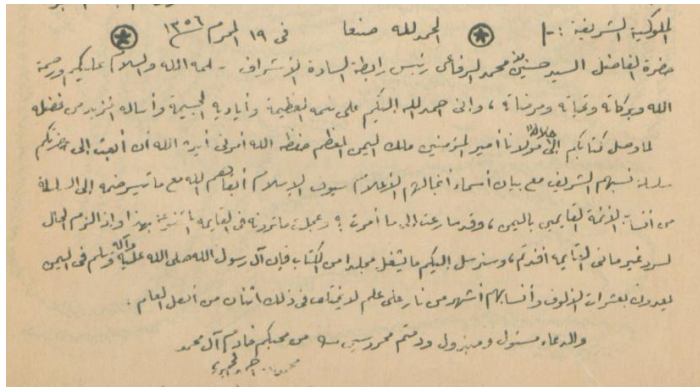 الملوكية الشريفة :- الحمد لله صنعا في ١٩ المحرم سنة ١٣٥٦
حضرة الفاضل السيد حسين محمد الرفاعي رئيس رابطة السادة الأشراف - سلمه الله والسلام عليكم ورحمة
الله وبركاته وتحياته ومرضاته ، وإني أحمد الله إليكم على نعمه العظيمة وأياديه الجسيمة وأساله المزيد من فضله
لما وصل كتابكم إلى جلالة مولانا أمير المؤمنين ملك اليمن المعظم حفظه الله أمرني أيده الله أن أبعث إلى حضرتكم
سلسلة نسبهم الشريف مع بيان أسماء أنجالهم الأعلام سيوف الإسلام أبقاهم الله مع ما تيسر ضمه إلى الرابطة
من أنساب الأئمة القايمين باليمن ، وقد سارعت إلى ما أمرت به وعجلت ما ترونه في القايمة بهذا وإذا لزم الحال
لسرد غير ما في القايمة أفدتم ، وسنرسل إليكم ما يثقل مجلدا من الكتاب فإن آل رسول الله صلى الله عليه وآله وسلم في اليمن
يعدون بعشرات الألوف وأنسابهم أشهر من نار على علم لا يختلف في ذلك اثنان من أهل العلم .
والدعاء مسئول ومبذول ودمتم محروسين من محبكم خادم آل محمد